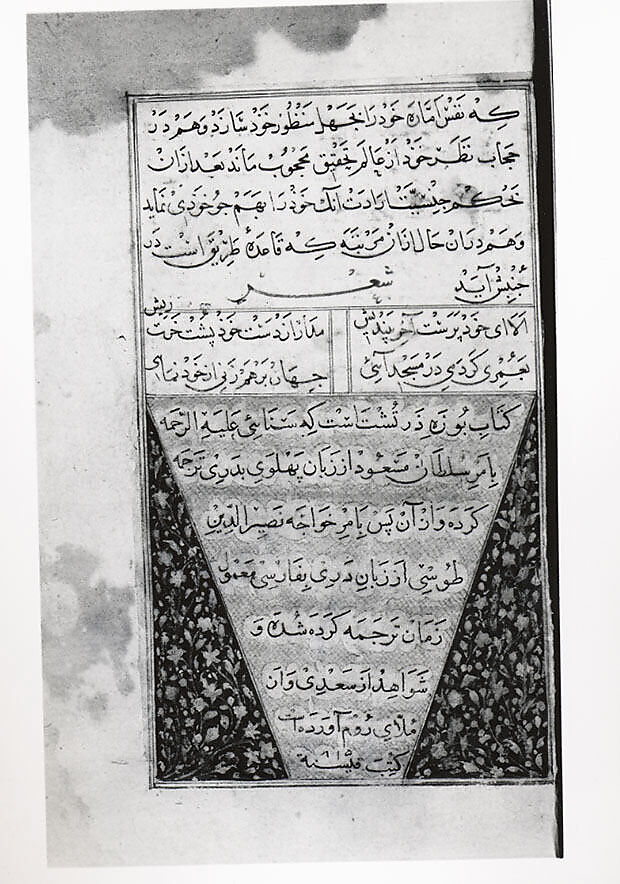 که نفس اماره خود را بجهل منظور خود سازد و هم در
حجاب نظر خود از عالم تحقیق محجوب ماند بعد ازان
بحکم جنسیت ارادت آنک خود را بهم جو خودی نماید
و هم دران حال ازان مرتبه که قاعدهٔ طریق است در
جنبش آید شعر
الا ای خود پرست آخر بیندیش مدار از دست خود پشت خرت ریش
بعمری کردی در مسجد آسی جهان برهم زنی از خود نمای
کتاب بوزه در تشتاست که سنائی علیه الرحمه
بامر سلطان مسعود از زبان پهلوی بدری ترجمه
کرده و از آن پس بامر خواجه نصیر الدین
طوسی از زبان دری بفارسی معمول
زمان ترجمه کرده شده و
شواهد از سعدی و از
ملای روم آورده‌اند
کتب فی سنة